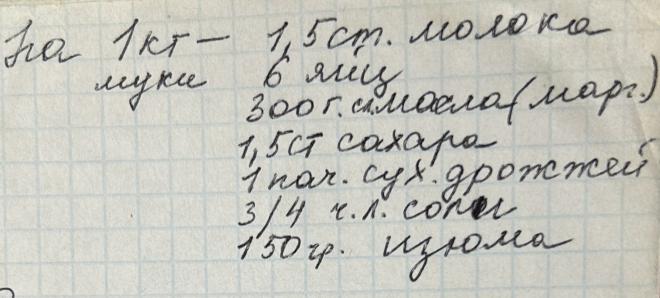 На 1кг – 1,5ст. молока
муки 6 яиц
300г. масла (марг.)
1,5ст сахара
1 пач. сух. дрожжей
3/4 ч.л. соли
150гр. изюма